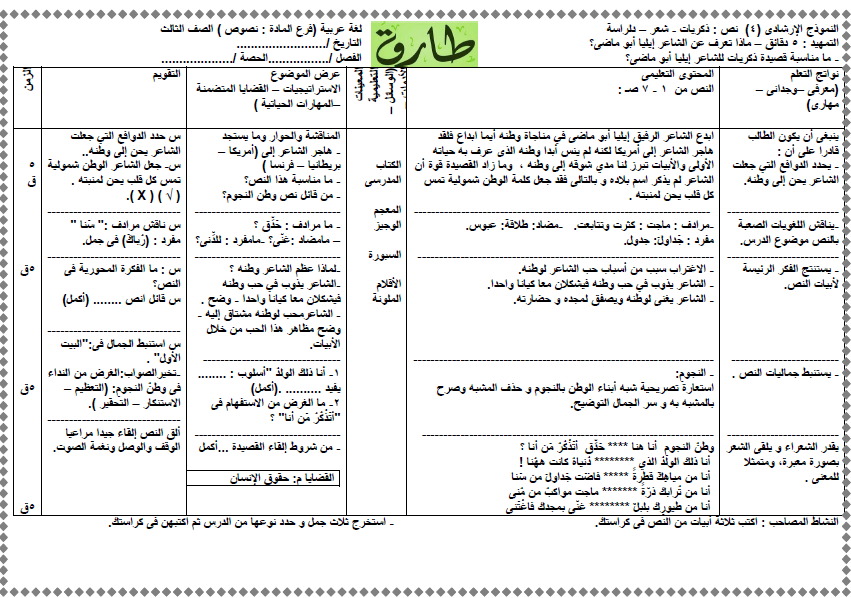 النموذج الإرشادى (٤) نص : ذكريات ـ شعر – دلراسة
التمهيد : ٥ دقائق – ماذا تعرف عن الشاعر إيليا أبو ماضى؟
- ما مناسبة قصيدة ذكريات للشاعر إيليا أبو ماضى؟
طارق
لغة عربية (فرع المادة : نصوص ) الصف الثالث
التاريخ /.........................
الفصل /.................الحصة /....................
نواتج التعلم
(معرفى –وجدانى –
مهارى)
المحتوى التعليمى
النص من ١ - ٧ صـ :
(الوسائل –
التعليمية
المعينات
عرض الموضوع
الاستراتيجيات – القضايا المتضمنة
–المهارات الحياتية )
التقويم
الزمن
ينبغى أن يكون الطالب
قادرا على أن :
- يحدد الدوافع التي جعلت
الشاعر يحن إلى وطنه.
-يناقش اللغويات الصعبة
بالنص موضوع الدرس.
- يستنتج الفكر الرئيسة
لأبيات النص.
- يستنبط جماليات النص .
يقدر الشعراء و يلقى الشعر
بصورة معبرة، ومتمثلا
للمعنى .
ابدع الشاعر الرقيق إيليا أبو ماضى في مناجاة وطنه أيما ابداع فلقد
هاجر الشاعر إلى أمريكا لكنه لم ينس أبدا وطنه الذى عرف به حياته
الأولى والأبيات تبرز لنا مدي شوقه إلى وطنه ، وما زاد القصيدة قوة أن
الشاعر لم يذكر اسم بلاده و بالتالى فقد جعل كلمة الوطن شمولية تمس
كل قلب يحن لمنبته .
-مرادف : ماجت : كثرت وتتابعت. -مضاد: طلاقة: عبوس.
مفرد : جَداولَ: جدول.
- الاغتراب سبب من أسباب حب الشاعر لوطنه.
- الشاعر يذوب في حب وطنه فيشكلان معا كيانا واحدا.
- الشاعر يغنى لوطنه ويصفق لمجده و حضارته.
- النجوم:
استعارة تصريحية شبه أبناء الوطن بالنجوم و حذف المشبه وصرح
بالمشبه به و سر الجمال التوضيح.
وطنُ النجومِ أنا هنا **** حَدِّق أتَذْكُرُ مَن أنا ؟
أنا ذلكَ الولدُ الذي ******** دُنياهُ كانت ههُنا !
أنا من مياهِكَ قطرةٌ ***** فاضَت جَداولَ من سَنا
أنا من تُرابكَ ذرّةٌ ******* ماجت مواكبُ من مُنى
أنا من طيورِك بلبلٌ ******** غنّى بمجدِكَ فاغْتَنى
الكتاب
المدرسى
المعجم
الوجيز
السبورة
الأقلام
الملونة
المناقشة والحوار وما يستجد
- هاجر الشاعر إلى (أمريكا –
بريطانيا – فرنسا )
- ما مناسبة هذا النص؟
- من قائل نص وطن النجوم؟
- ما مرادف : حَدِّق ؟
– مامضاد :غنّى؟ -مامفرد : للدُّنى؟
-لماذا عظم الشاعر وطنه ؟
-الشاعر يذوب في حب وطنه
فيشكلان معا كيانا واحدا - وضح .
- الشاعرمحب لوطنه مشتاق إليه -
وضح مظاهر هذا الحب من خلال
الأبيات.
١- أنا ذلكَ الولدُ "أسلوب : ........
يفيد .......... .(أكمل)
٢- ما الغرض من الاستفهام فى
"أتَذْكُرُ مَن أنا" ؟
- من شروط إلقاء القصيدة ...أكمل
القضايا م: حقوق الإنسان
س حدد الدوافع التي جعلت
الشاعر يحن إلى وطنه..
س- جعل الشاعر الوطن شمولية
تمس كل قلب يحن لمنبته .
( √ ) ( X ).
س ناقش مرادف :" سَنا "
مفرد : (رُباكَ) فى جمل.
س : ما الفكرة المحورية فى
النص؟
س قائل انص ........ (أكمل)
س استنبط الجمال فى:"البيت
الأول" .
-تخيرالصواب:الغرض من النداء
فى وطنُ النجوم: (التعظيم –
الاستنكار – التحقير ).
ألق النص إلقاء جيدا مراعيا
الوقف والوصل ونغمة الصوت.
٥
ق
٥ق
٥ق
٥ق
النشاط المصاحب : اكتب ثلاثة أبيات من النص فى كراستك.
- استخرج ثلاث جمل و حدد نوعها من الدرس ثم أكتبهن فى كراستك.